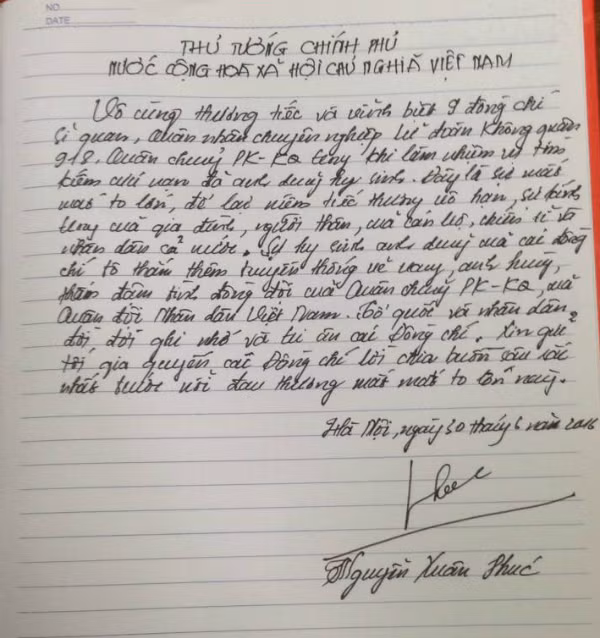 NO.
DATE
THỦ TƯỚNG CHÍNH PHỦ
NƯỚC CỘNG HOÀ XÃ HỘI CHỦ NGHĨA VIỆT NAM
Vô cùng thương tiếc và vĩnh biệt 9 đồng chí
sĩ quan, Quân nhân chuyên nghiệp Lữ đoàn Không quân
918. Quân chủng PK-KQ trong khi làm nhiệm vụ tìm
kiếm cứu nạn đã anh dũng hy sinh. Đây là sự mất
mát to lớn, để lại niềm tiếc thương vô hạn, sự kính
trọng của gia đình, người thân, của cán bộ, chiến sĩ và
nhân dân cả nước. Sự hy sinh anh dũng của các đồng
chí tô thắm thêm truyền thống vẻ vang, anh hùng,
thắm đậm tình đồng đội của Quân chủng PK-KQ, của
Quân đội Nhân dân Việt Nam. Tổ quốc và nhân dân
đời đời ghi nhớ và tri ân các Đồng chí. Xin gửi
tới gia quyến các Đồng chí lời chia buồn sâu sắc
nhất trước nỗi đau thương mất mát to lớn này.
Hà Nội, ngày 30 tháng 6 năm 2016
Phuc
Nguyễn Xuân Phúc